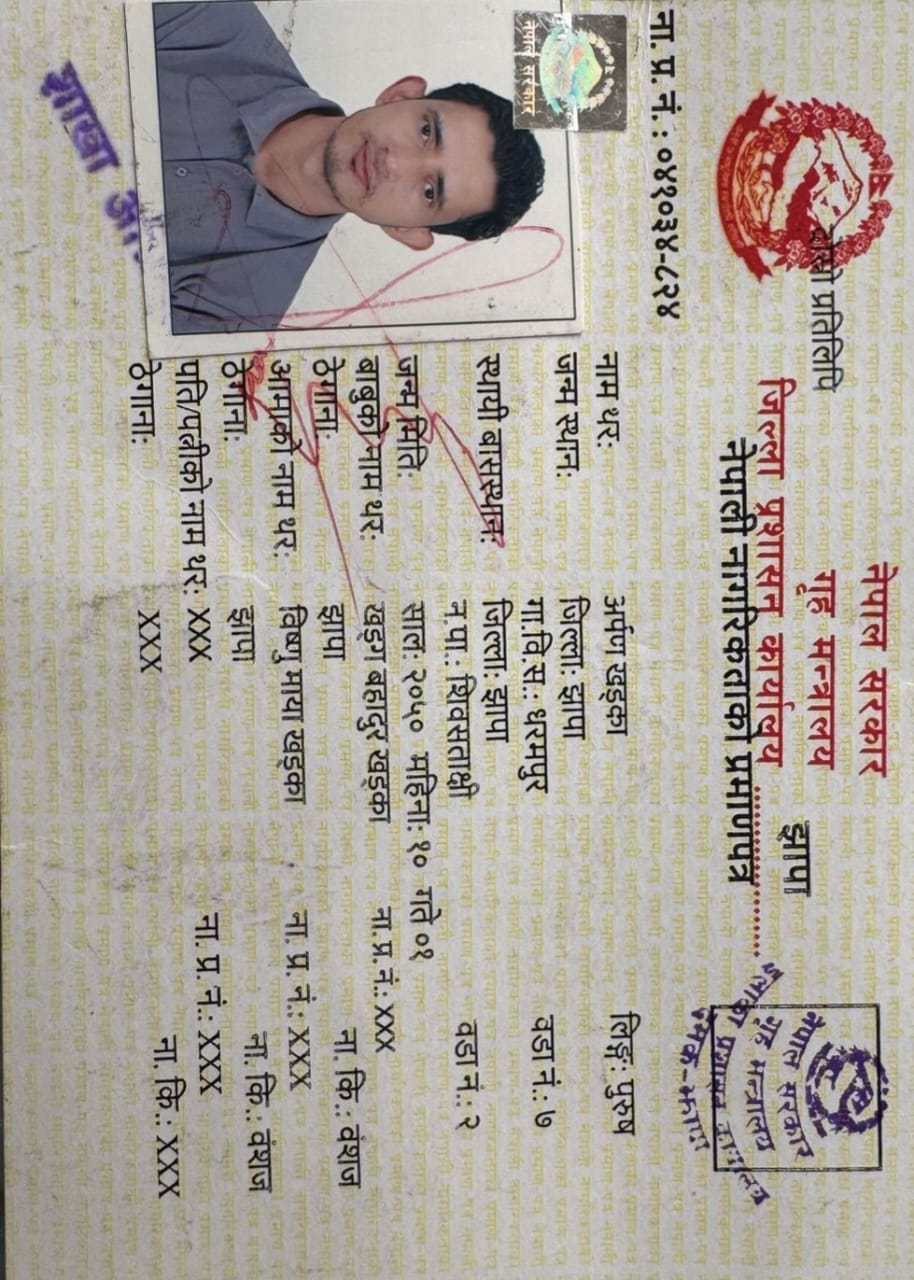 नेपाल सरकार
गृह मन्त्रालय
जिल्ला प्रशासन कार्यालय झापा
नेपाली नागरिकताको प्रमाणपत्र
दोस्रो प्रतिलिपि
नेपाल सरकार
गृह मन्त्रालय
इलाका प्रशासन
नेपाल सरकार
ना. प्र. नं.: ०४१०३४-८२४
नाम थर: अर्पण खड्का लिङ्ग: पुरुष
जन्म स्थान: जिल्ला: झापा
गा.वि.स.: धरमपुर वडा नं.: ७
स्थायी वासस्थान: जिल्ला: झापा
न.पा.: शिवसताक्षी वडा नं.: २
जन्म मिति: साल: २०५० महिना: १० गते ०१
बाबुको नाम थर: खड्ग बहादुर खड्का ना. प्र. नं.: XXX
ठेगाना: झापा ना. कि.: वंशज
आमाको नाम थर: विष्णु माया खड्का ना. प्र. नं.: XXX
ठेगाना: झापा ना. कि.: वंशज
पति/पत्नीको नाम थर: XXX ना. प्र. नं.: XXX
ठेगाना: XXX ना. कि.: XXX
शाखा